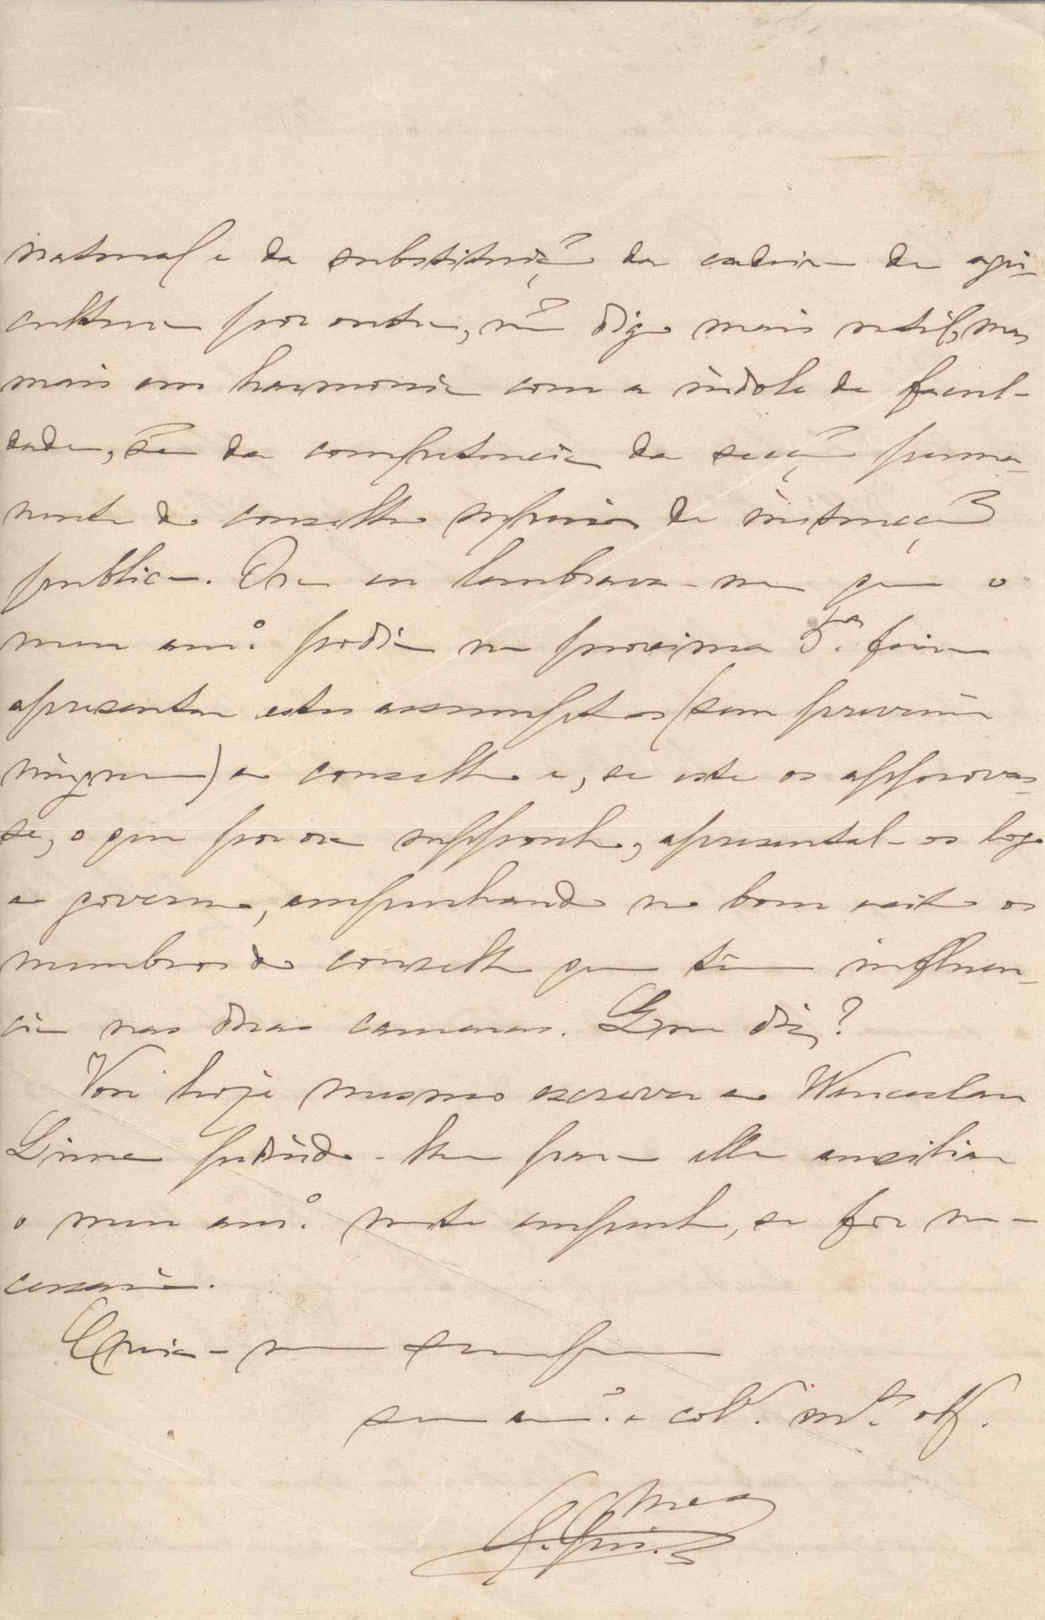 natural e da substituição da cadeira de agri-
cultura por outra, não digo mais util, mas
mais em harmonia com a indole da facul-
dade, são da competencia da secção perma-
nente do conselho superior de instrucção
publica. Ora eu lembrava-me que o
meu am.º podia na proxima 5.ª feira
apresentar estes assumptos (sem prevenir
ninguem) ao conselho e, se este os approvas-
se, o que por ora supponho, apresental-os logo
ao governo, empenhando no bom exito os
membros do conselho que têm influen-
cia nas duas camaras. Que diz?
Vou hoje mesmo escrever ao Wenceslau
Lima pedindo-lhe para elle auxiliar
o meu am.º neste empenho, se for ne-
cessario.
Creia-me sempre
seu am.º e col. m.to obg.